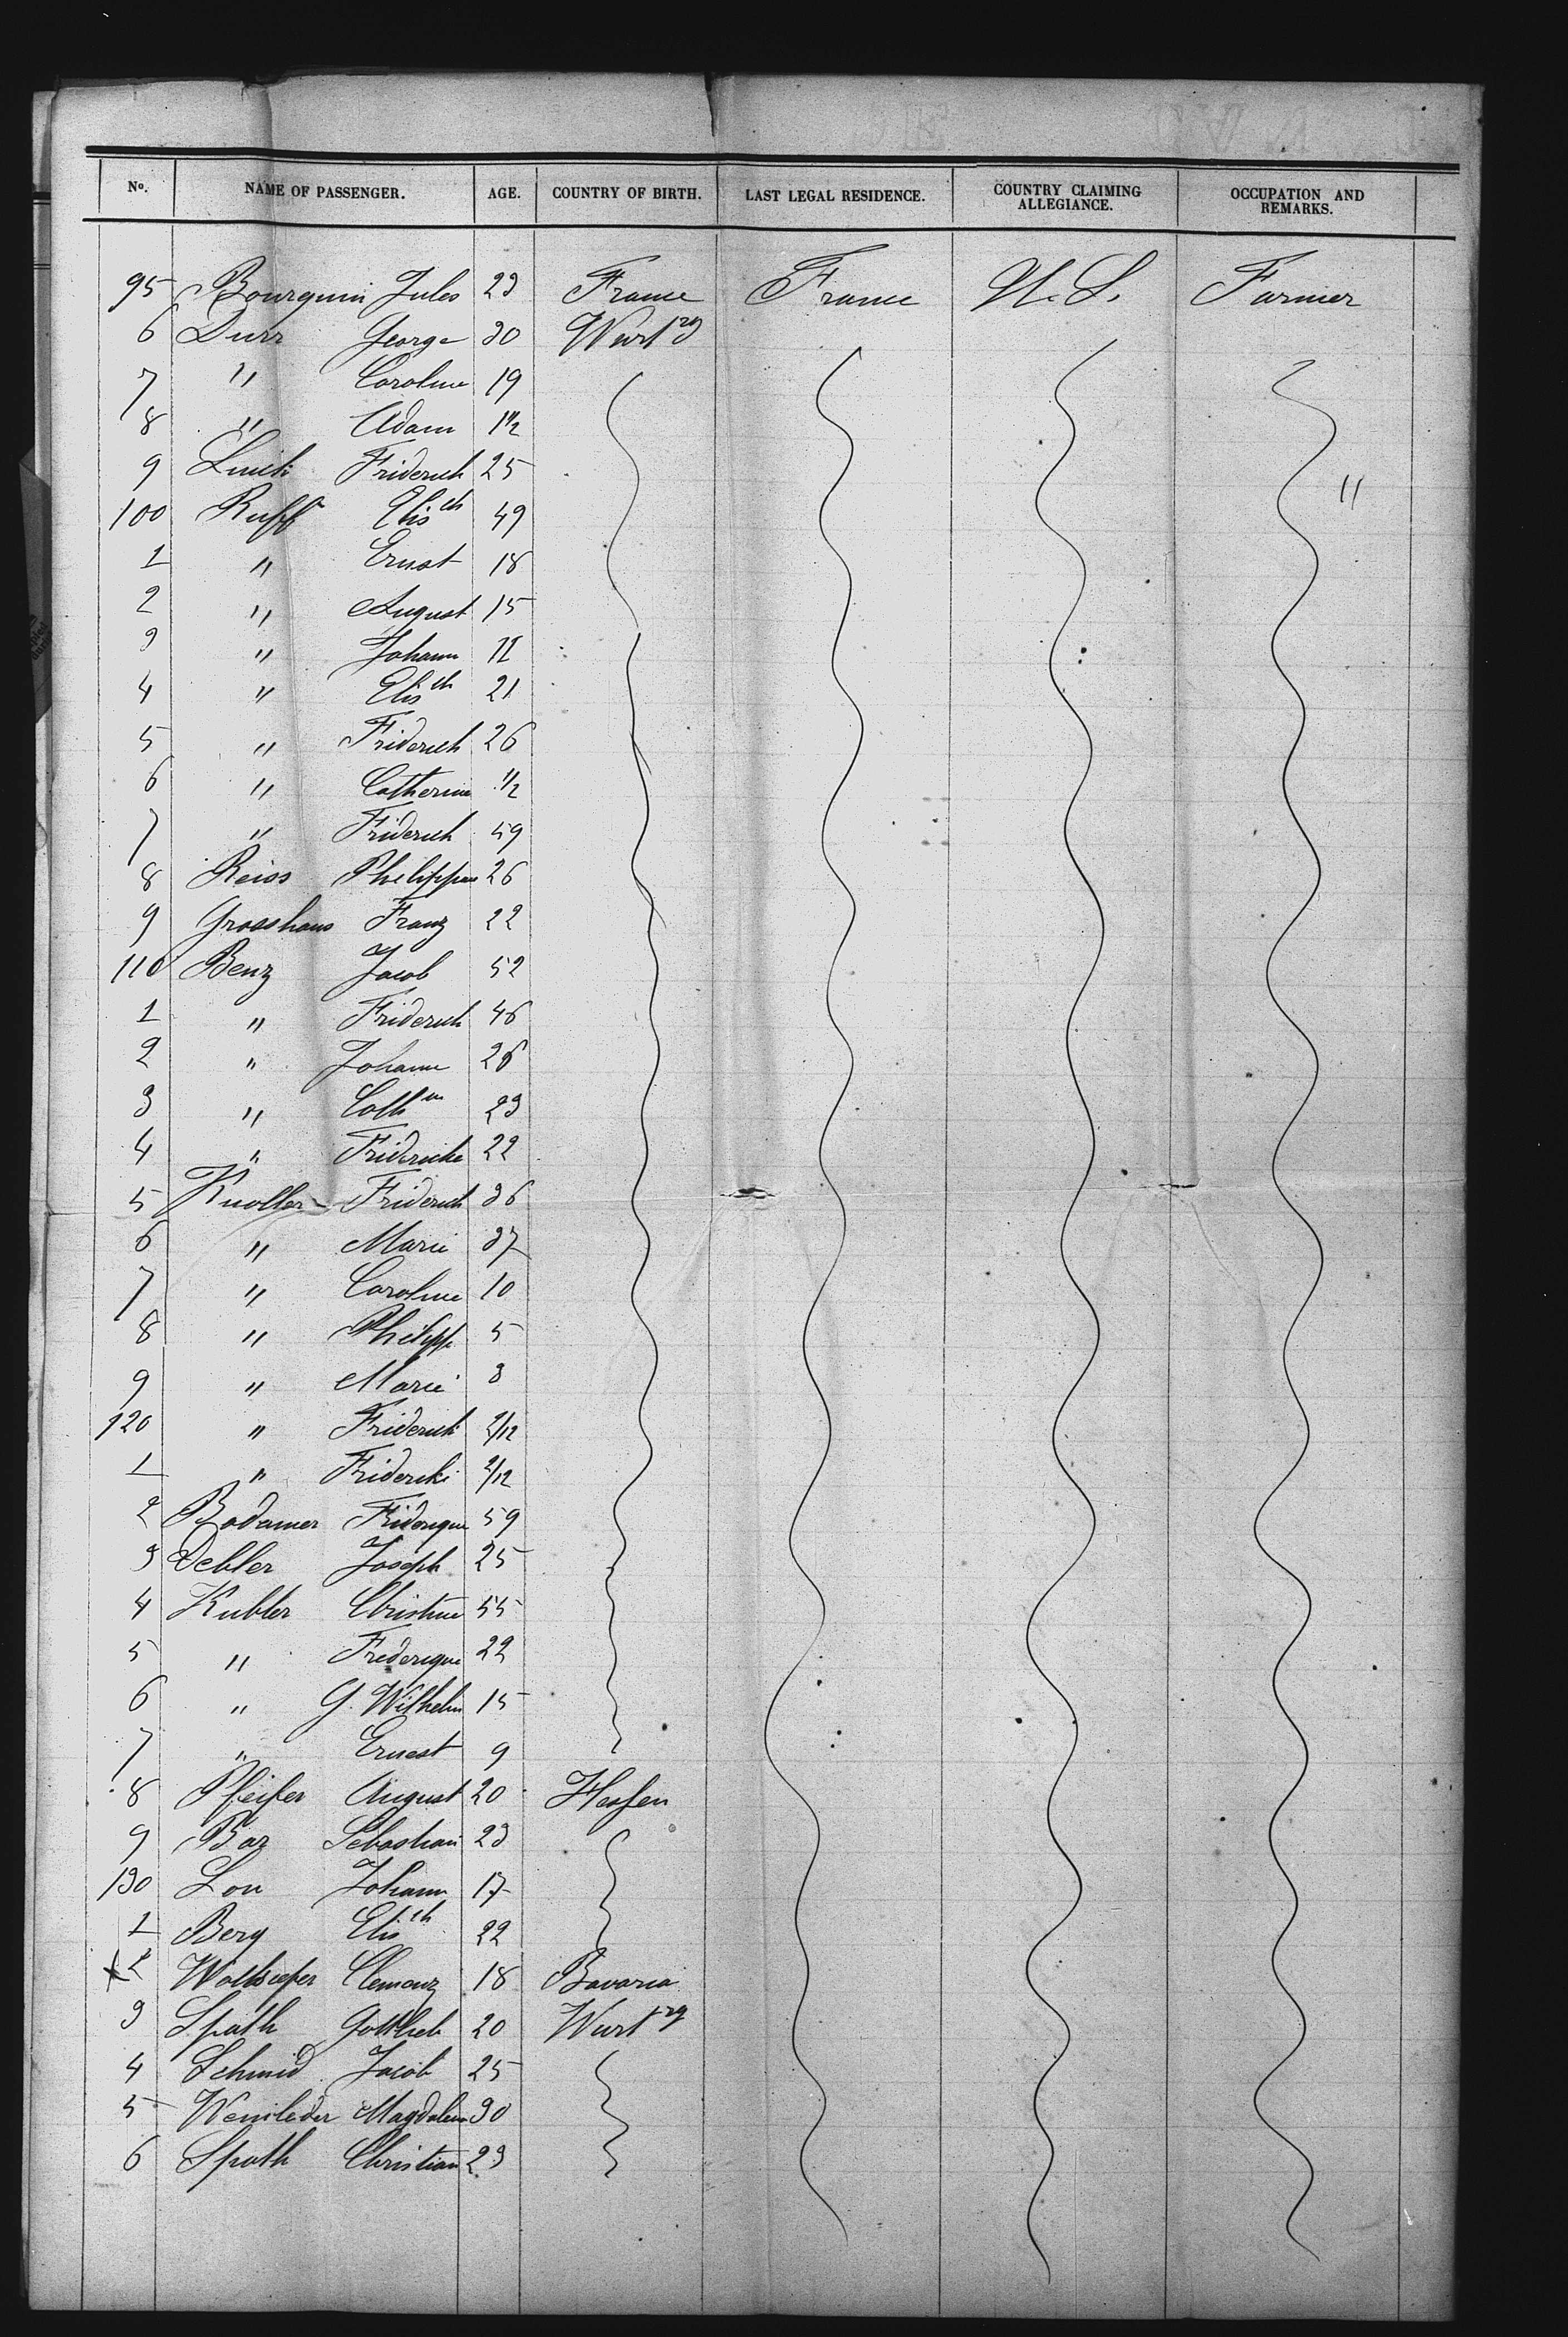 No. NAME OF PASSENGER. AGE. COUNTRY OF BIRTH. LAST LEGAL RESIDENCE. COUNTRY CLAIMING ALLEGIANCE. OCCUPATION AND REMARKS.
95 Bourquin Jules 23 France France U.S. Farmer
6 Durr George 30 Wurtrg
7 " Caroline 19
8 " Adam 1 1/2
9 Friderich 25 "
100 Ruff Elisth 49
1 " Ernst 18
2 " August 15
3 " Johann 11
4 " Elisth 21
5 " Friderich 26
6 " Catherine 1/2
7 " Friderich 59
8 Reiss Philippne 26
9 Grosshans Franz 22
110 Benz Jacob 52
1 " Friderich 46
2 " Johann 26
3 " Cathne 23
4 " Fridericke 22
5 Knoller Friderich 36
6 " Marie 37
7 " Caroline 10
8 " Philipp 5
9 " Marie 3
120 " Friderich 2/12
1 " Friderike 2/12
2 Bodamer Friderique 59
3 Debler Joseph 25
4 Kubler Christine 55
5 " Frederique 22
6 " G. Wilhelm 15
7 " Ernest 9
8 Pfeifer August 20 Hessen
9 Bar Sebastian 23
130 Lou Johann 17
1 Berg Elisth 22
x 2 Clemenz 18 Bavaria
3 Spath Gottlieb 20 Wurtrg
4 Schmid Jacob 25
5 Magdalena 30
6 Spath Christian 23